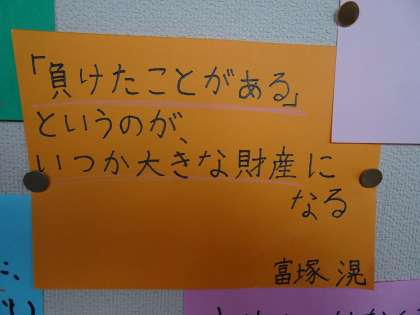 「負けたことがある」
というのが、
いつか大きな財産に
なる
富塚 滉